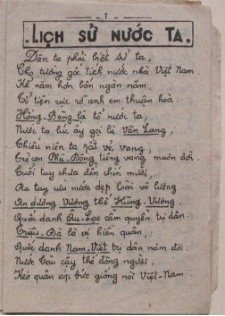 - 1 -
LỊCH SỬ NƯỚC TA.
Dân ta phải biết sử ta,
Cho tường gốc tích nước nhà Việt Nam.
Kể năm hơn bốn ngàn năm,
Tổ tiên rực rỡ anh em thuận hoà.
Hồng-Bàng là tổ nước ta,
Nước ta lúc ấy gọi là Văn Lang.
Thiếu niên ta rất vẻ vang,
Trẻ con Phù-Đổng tiếng vang muôn đời.
Tuổi tuy chưa đến chín mười,
Ra tay cứu nước dẹp loài vô lương.
An dương Vương thế Hùng-Vương,
Quốc danh Âu-Lạc cầm quyền trị dân.
Triệu-Đà là vị hiền quân,
Quốc danh Nam-Việt trị dân năm đời.
Nước Tàu cậy thế đông người,
Kéo quân áp bức giống nòi Việt-Nam.